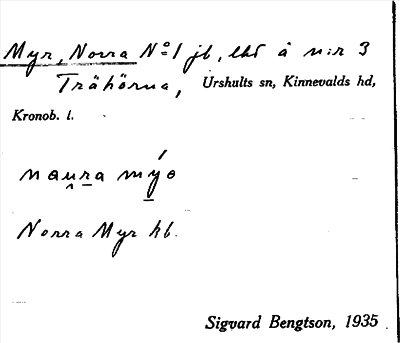 Myr, Norra No 1 jb, lht å n:r 3
Trähörna, Urshults sn, Kinnevalds hd,
Kronob. l.
nau̯ra mýo
Norra Myr kb.
Sigvard Bengtson, 1935